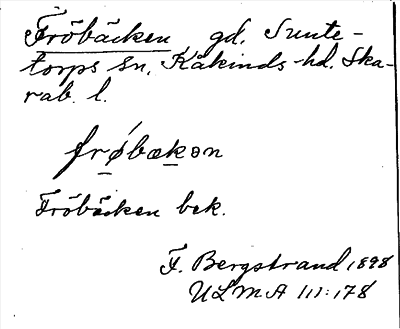 Fröbäcken gd. Sunte-
torps sn, Kåkinds-hd. Ska-
rab. l.
frøbækon
Fröbäcken bek.
F. Bergstrand 1898
ULMA 111:178